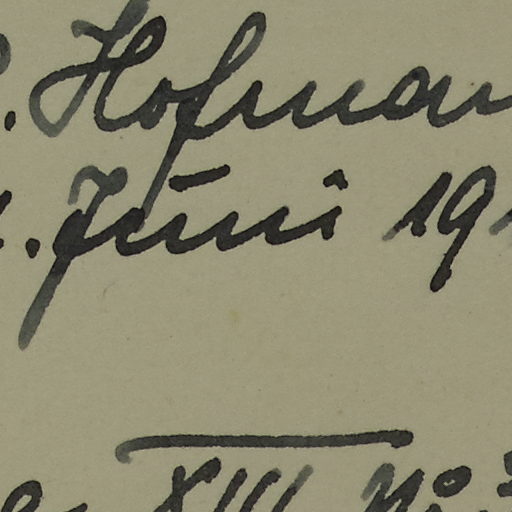 . Hofman
. Juni 19
XIII No.